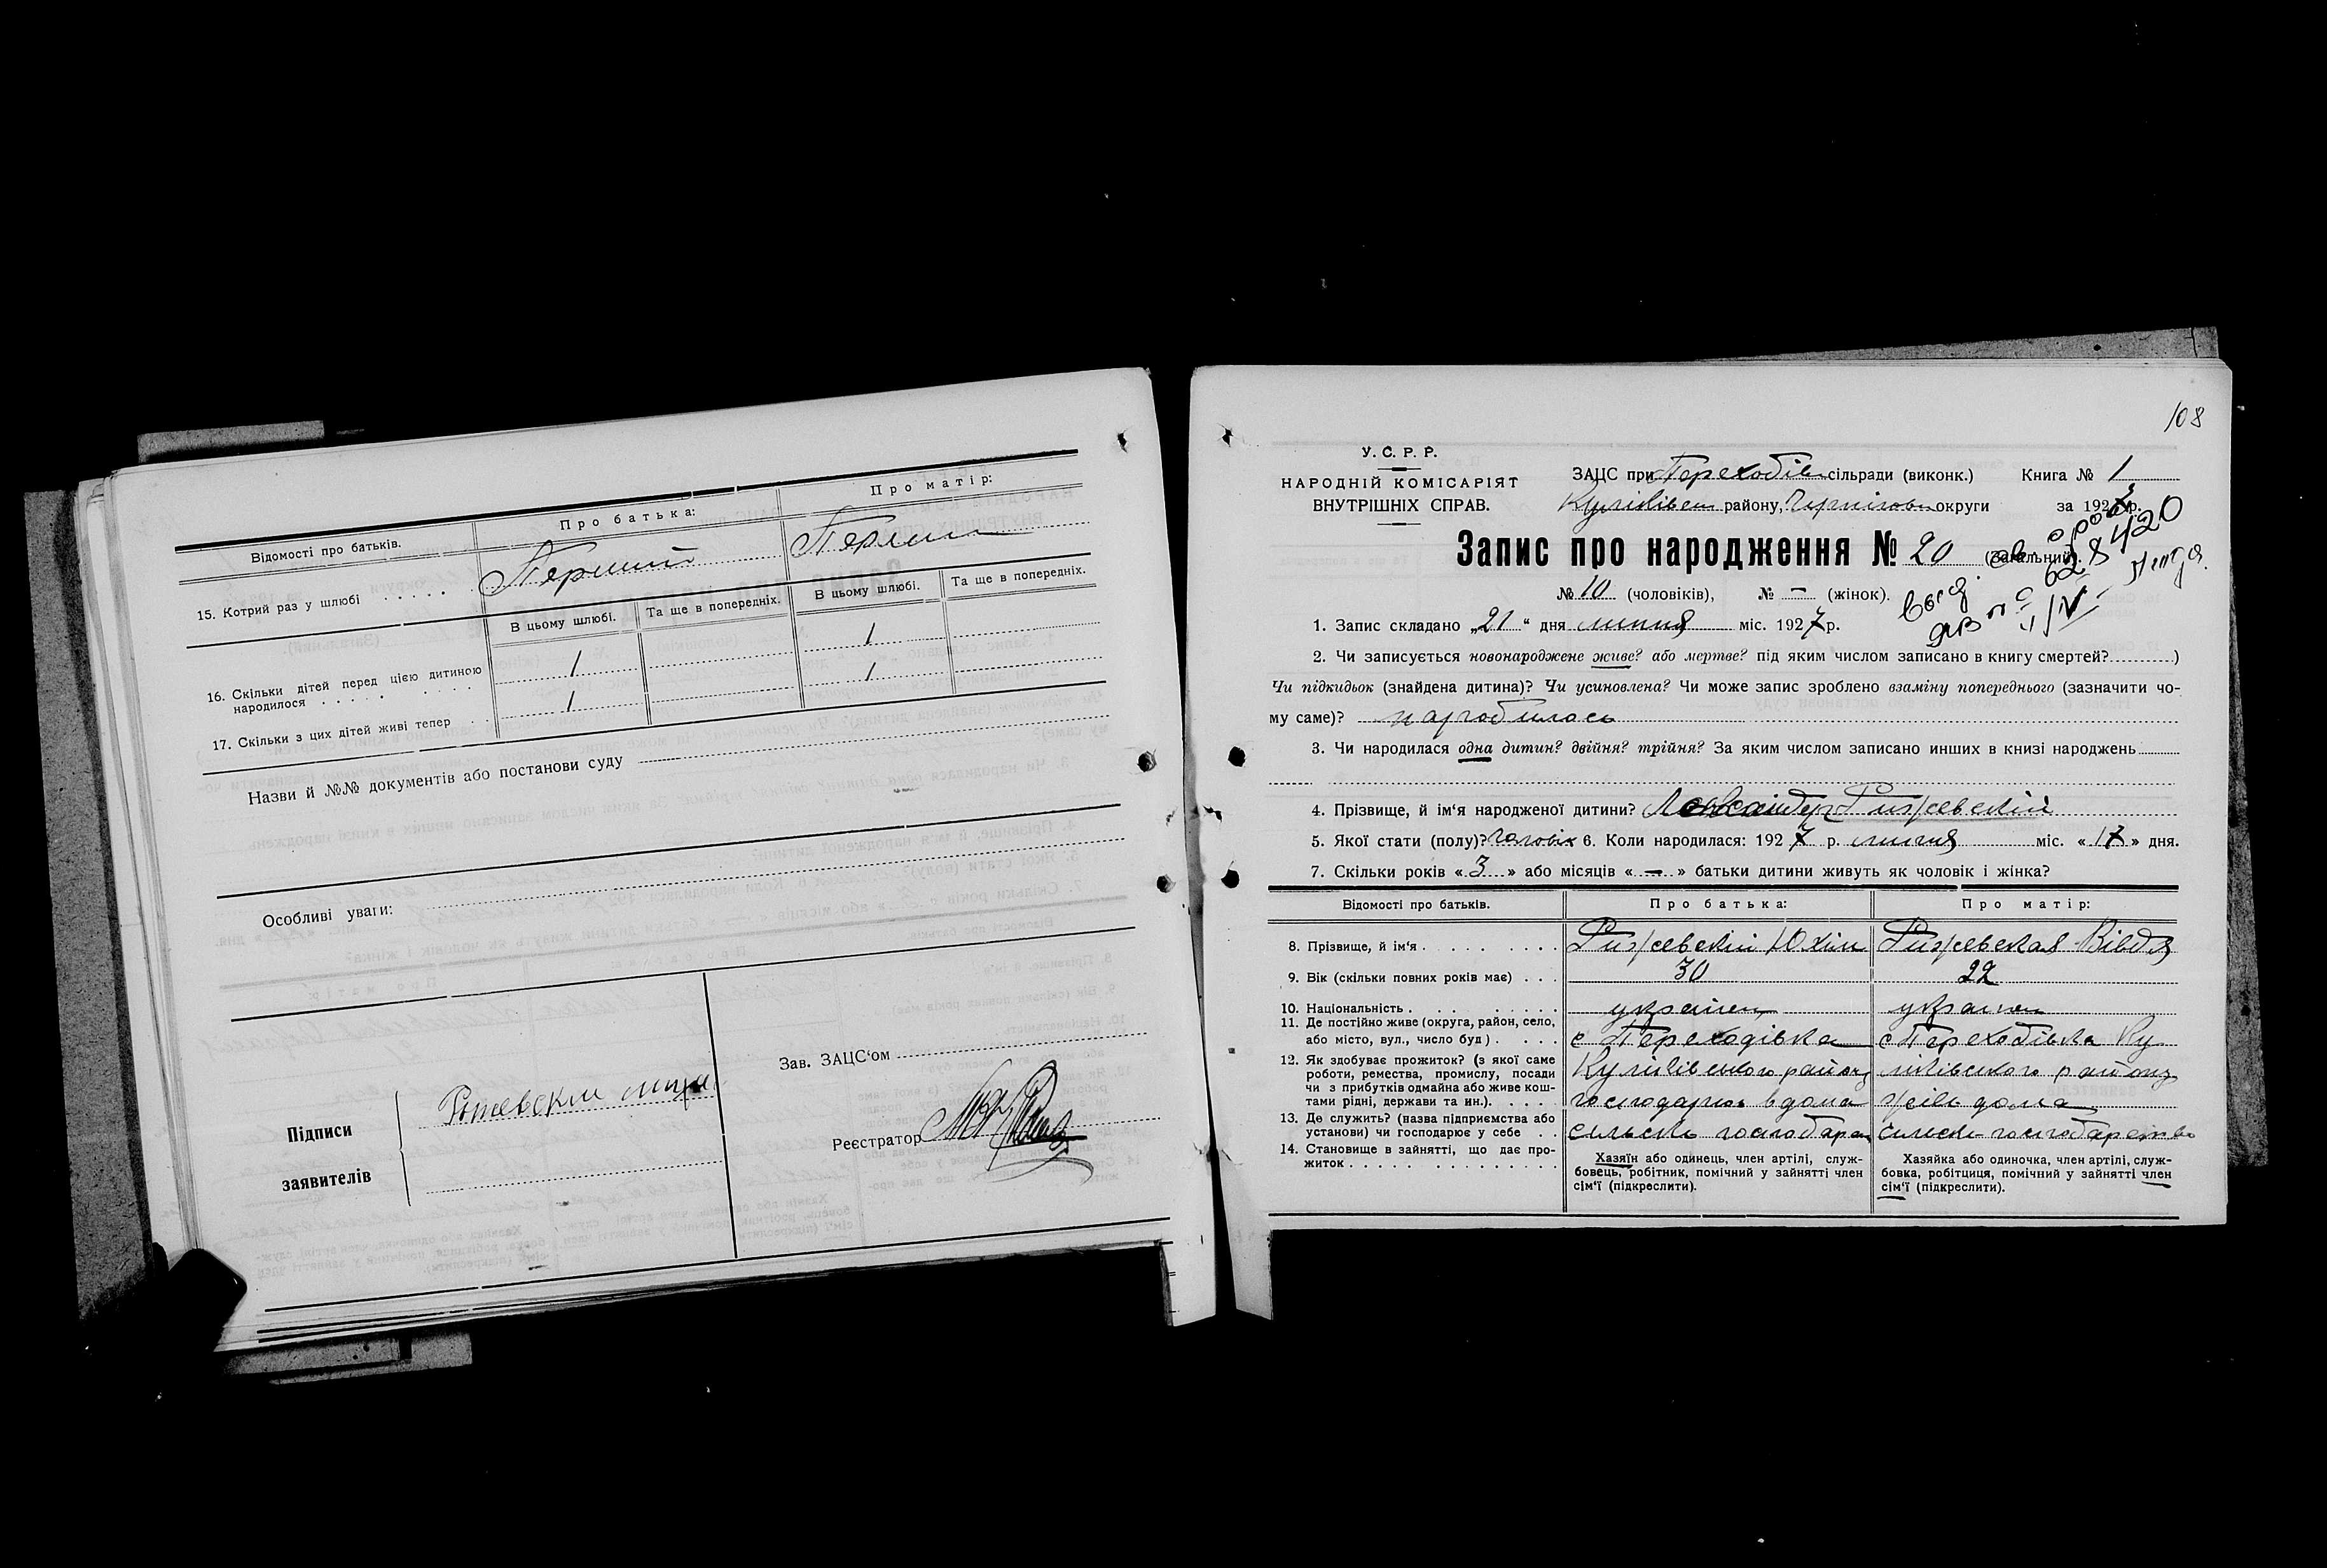 Відомості про батьків.
Про батька:
Про матір:
15. Котрий раз у шлюбі . . . . .
Перший
В цьому шлюбі.
Та ще в попередніх.
В цьому шлюбі.
Та ще в попередніх.
16. Скільки дітей перед цією дитиною
народилося . . . . . . . .
1
1
17. Скільки з цих дітей живі тепер . .
1
1
Назви й №№ документів або постанови суду
Особливі уваги:
Підписи
заявителів
Зав. ЗАЦС'ом
Реєстратор
108
У. С. Р. Р.
НАРОДНІЙ КОМІСАРІЯТ
ВНУТРІШНІХ СПРАВ.
ЗАЦС при Переходів сільради (виконк.) Книга № 1
Куликівськ району, Чернігов округи за 1927 р.
Запис про народження № 20 (Загальний).
628420
№ 10 (чоловіків), № — (жінок).
1. Запис складано „21" дня липня міс. 1927 р.
2. Чи записується новонароджене живе? або мертве? під яким числом записано в книгу смертей? )
Чи підкидьок (знайдена дитина)? Чи усиновлена? Чи може запис зроблено взаміну попереднього (зазначити чо-
му саме)? народилось
3. Чи народилася одна дитин? двійня? трійня? За яким числом записано инших в книзі народжень
4. Прізвище, й ім'я народженої дитини? Александр Рижевский
5. Якої стати (полу)? чоловік 6. Коли народилася: 1927 р. липня міс. «17» дня.
7. Скільки років «3» або місяців «—» батьки дитини живуть як чоловік і жінка?
Відомості про батьків.
Про батька:
Про матір:
8. Прізвище, й ім'я . . . . . . . . .
Рижевский Юхим
Рижевская Вівдя
9. Вік (скільки повних років має) . . .
30
22
10. Національність . . . . . . . .
украінец
украінец
11. Де постійно живе (округа, район, село,
або місто, вул., число буд) . . . .
с Переходівка
с Переходівка Ку
12. Як здобуває прожиток? (з якої саме
роботи, ремества, промислу, посади
чи з прибутків одмайна або живе кош-
тами рідні, держави та ин.). . . . .
Куликівського району
ликівського району
13. Де служить? (назва підприємства або
установи) чи господарює у себе . .
14. Становище в зайнятті, що дає про-
житок . . . . . . . . . . . . .
Хазяїн або одинець, член артілі, служ-
бовець, робітник, помічний у зайнятті член
сім'ї (підкреслити).
Хазяйка або одиночка, член артілі, служ-
бовка, робітциця, помічний у зайнятті член
сім'ї (підкреслити).